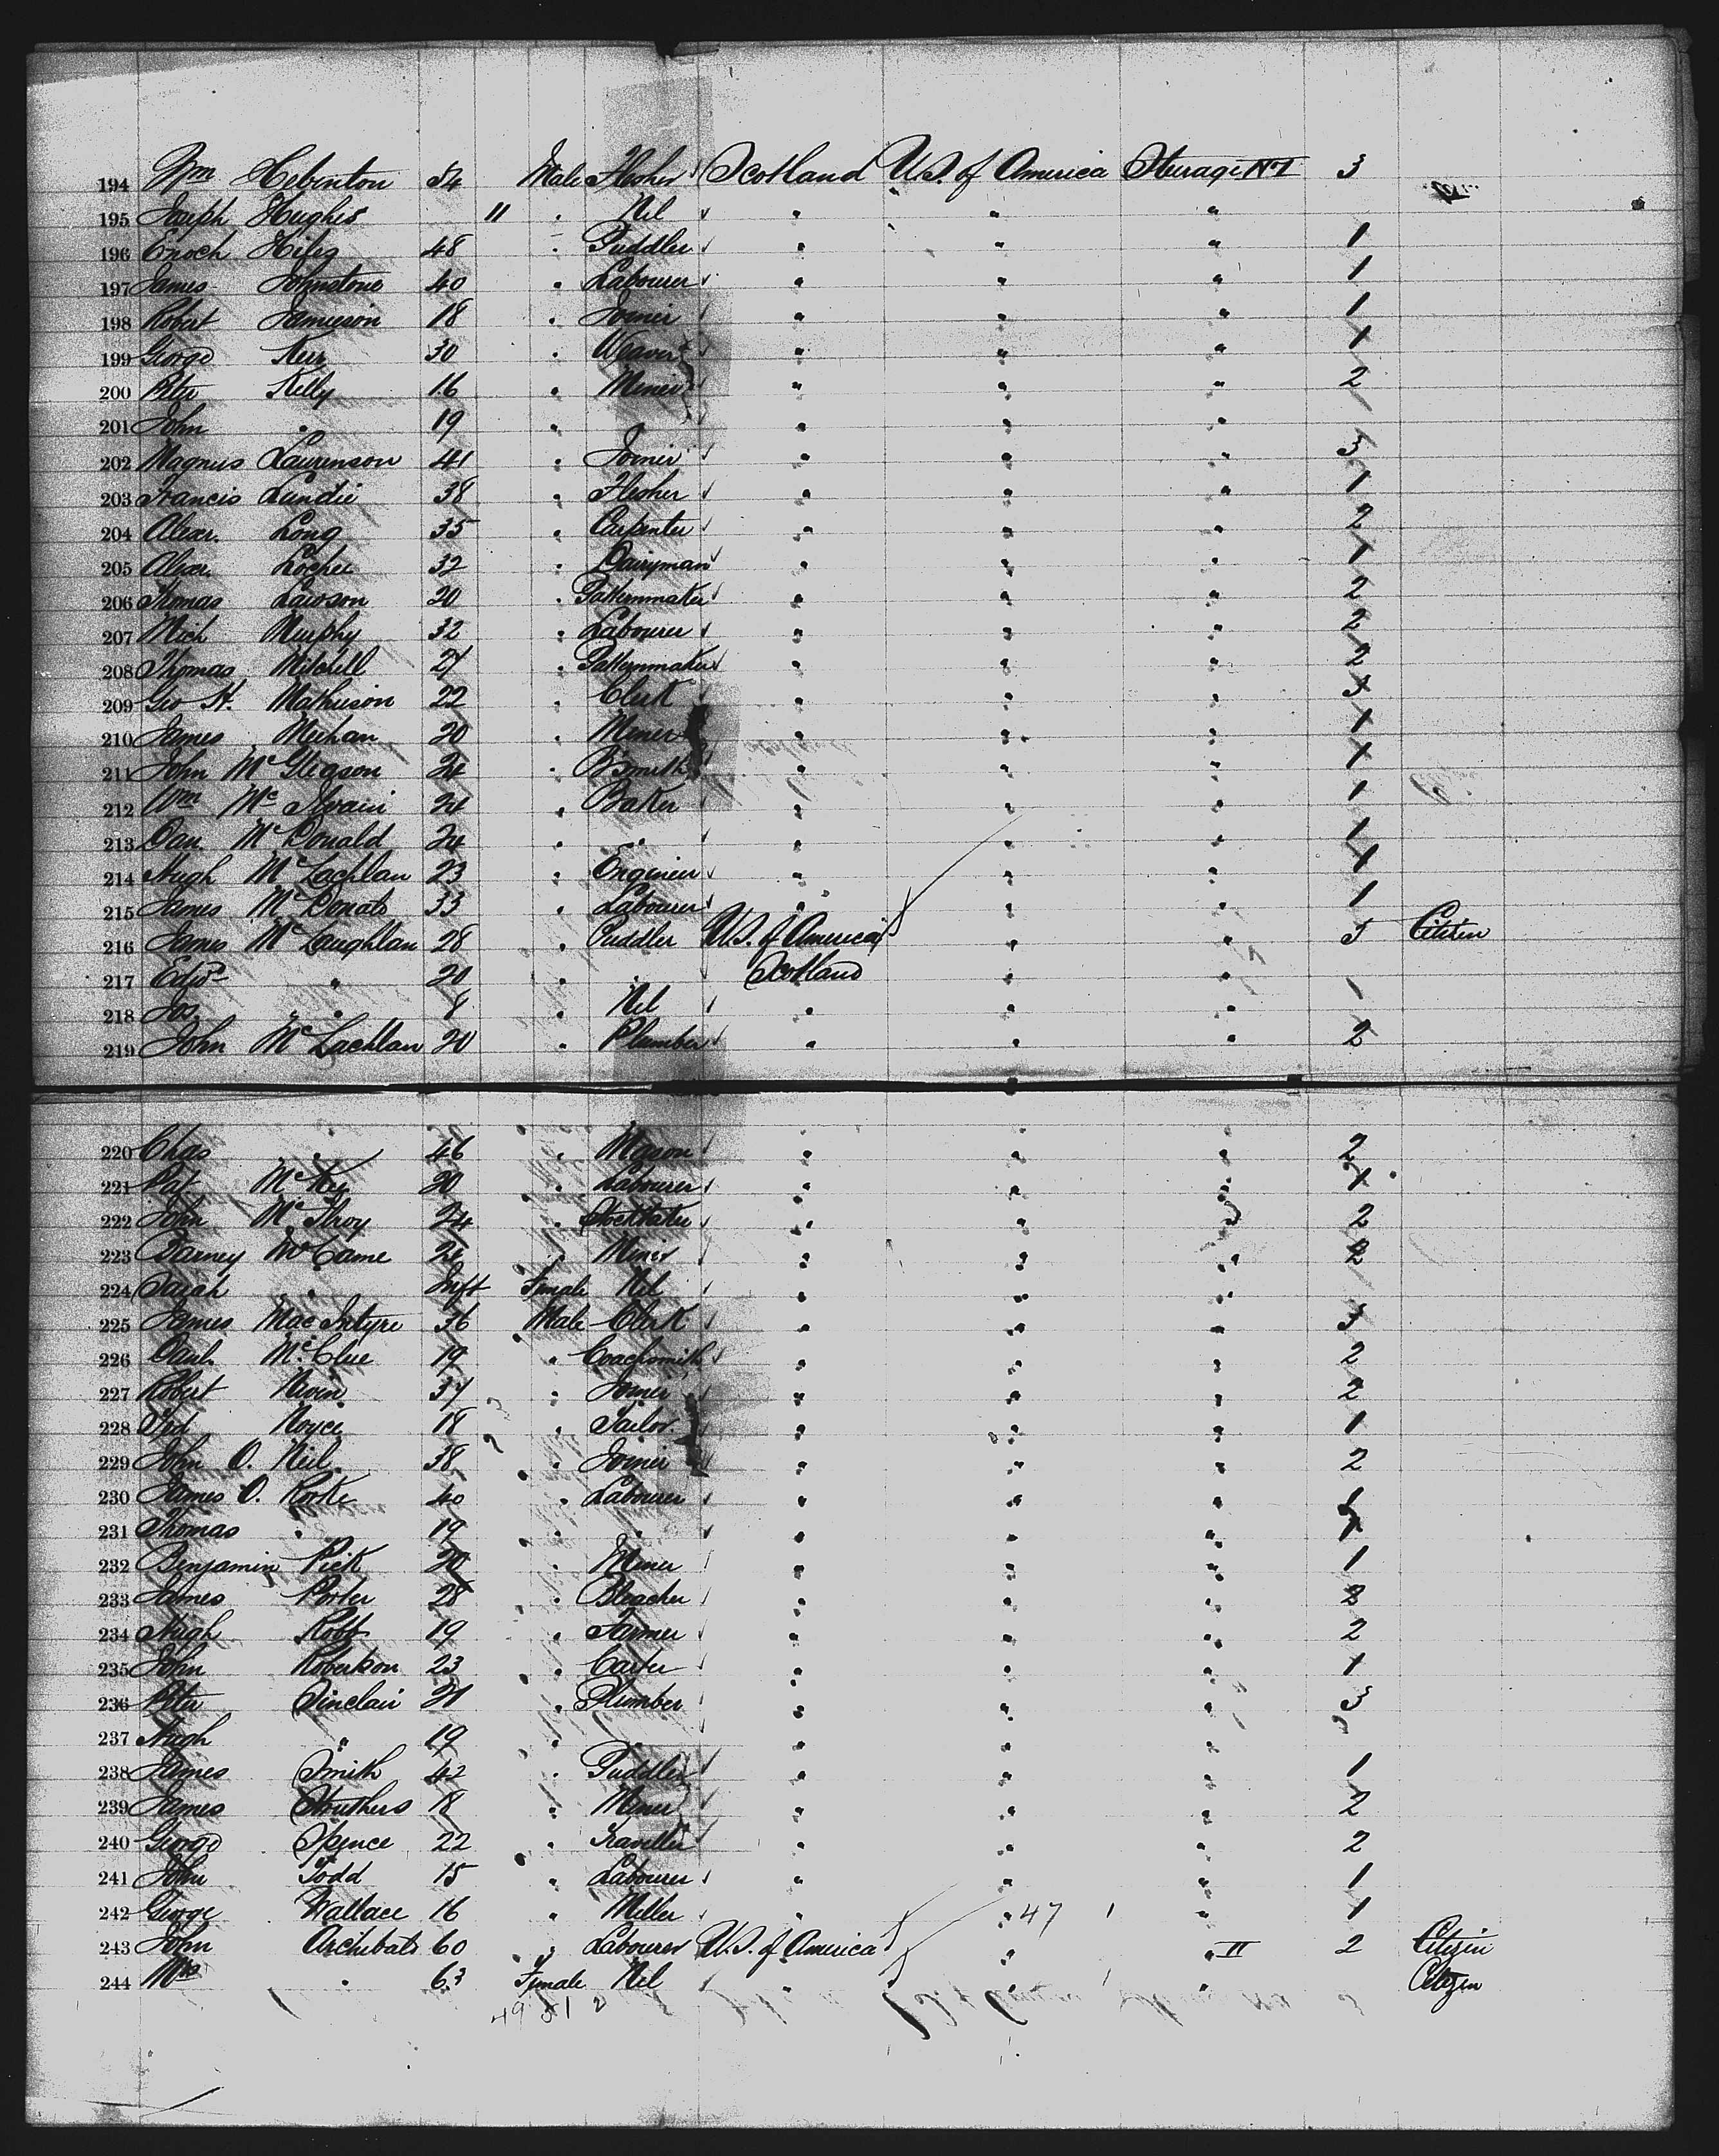 194 Wm Hebenton 34 Male Flesher Scotland U.S. of America Sterage No I 3
195 Joseph Hughes 11 " Nil " " "
196 Enoch 48 " Puddler " " " 1
197 James Johnstone 40 " Labourer " " " 1
198 Robert Jamieson 18 " Joiner " " " 1
199 George Keir 30 " Weaver " " " 1
200 Peter Kelly 16 " Miner " " " 2
201 John " 19 " " " " "
202 Magnus Laurenson 41 " Joiner " " " 3
203 Francis Lundie 38 " Flesher " " " 1
204 Alexr. Long 35 " Carpenter " " " 2
205 Alexr. Lochee 32 " Dairyman " " " 1
206 Thomas Lawson 20 " Patternmaker " " " 2
207 Mich Murphy 32 " Labourer " " " 2
208 Thomas Mitchell 27 " Patternmaker " " " 2
209 Geo H. Mathieson 22 " Clerk " " " 3
210 James Meehan 20 " Miner " " " 1
211 John Mc Gleason 24 " Bsmith " " " 1
212 Wm Mc 24 " Baker " " " 1
213 Dan. Mc Donald 24 " " " " " 1
214 Hugh McLachlan 23 " Engineer " " " 1
215 James McDonald 33 " Labourer " " " 1
216 James McLaughlan 28 " Puddler U.S. of America " " 3 Citizen
217 Edwd " 20 " Scotland " "
218 Jos. " 8 " Nil " " "
219 John McLachlan 20 " Plumber " " " 2
220 Chas " 46 " Mason " " " 2
221 Pat McKay 20 " Labourer " " " 1
222 John McIlroy 24 " Stocktaker " " " 2
223 Barney McCame 24 " Miner " " " 2
224 Sarah " Inft Female Nil " " "
225 James MacIntyre 36 Male Clerk " " " 3
226 Danl. McClue 19 " Coachsmith " " " 2
227 Robert Niven 37 " Joiner " " " 2
228 Fred Noyce 18 " Tailor " " " 1
229 John O. Neil 38 " Joiner " " " 2
230 James O. Rorke 40 " Labourer " " " 1
231 Thomas " 19 " " " " " 1
232 Benjamin Pick 20 " Miner " " " 1
233 James Porter 28 " Bleacher " " " 2
234 Hugh Robb 19 " Farmer " " " 2
235 John Robertson 23 " Carter " " " 1
236 Peter Sinclair 21 " Plumber " " " 3
237 Hugh " 19 " " " "
238 James Smith 42 " Puddler " " " 1
239 James Struthers 18 " Miner " " " 2
240 George Spence 22 " Traveller " " " 2
241 John Todd 15 " Labourer " " " 1
242 George Wallace 16 " Miller " " 47 1 " 1
243 John Archibald 60 " Labourer U.S. of America " " II 2 Citizen
244 Mrs " 63 Female Nil " " " Citizen
49 1 2